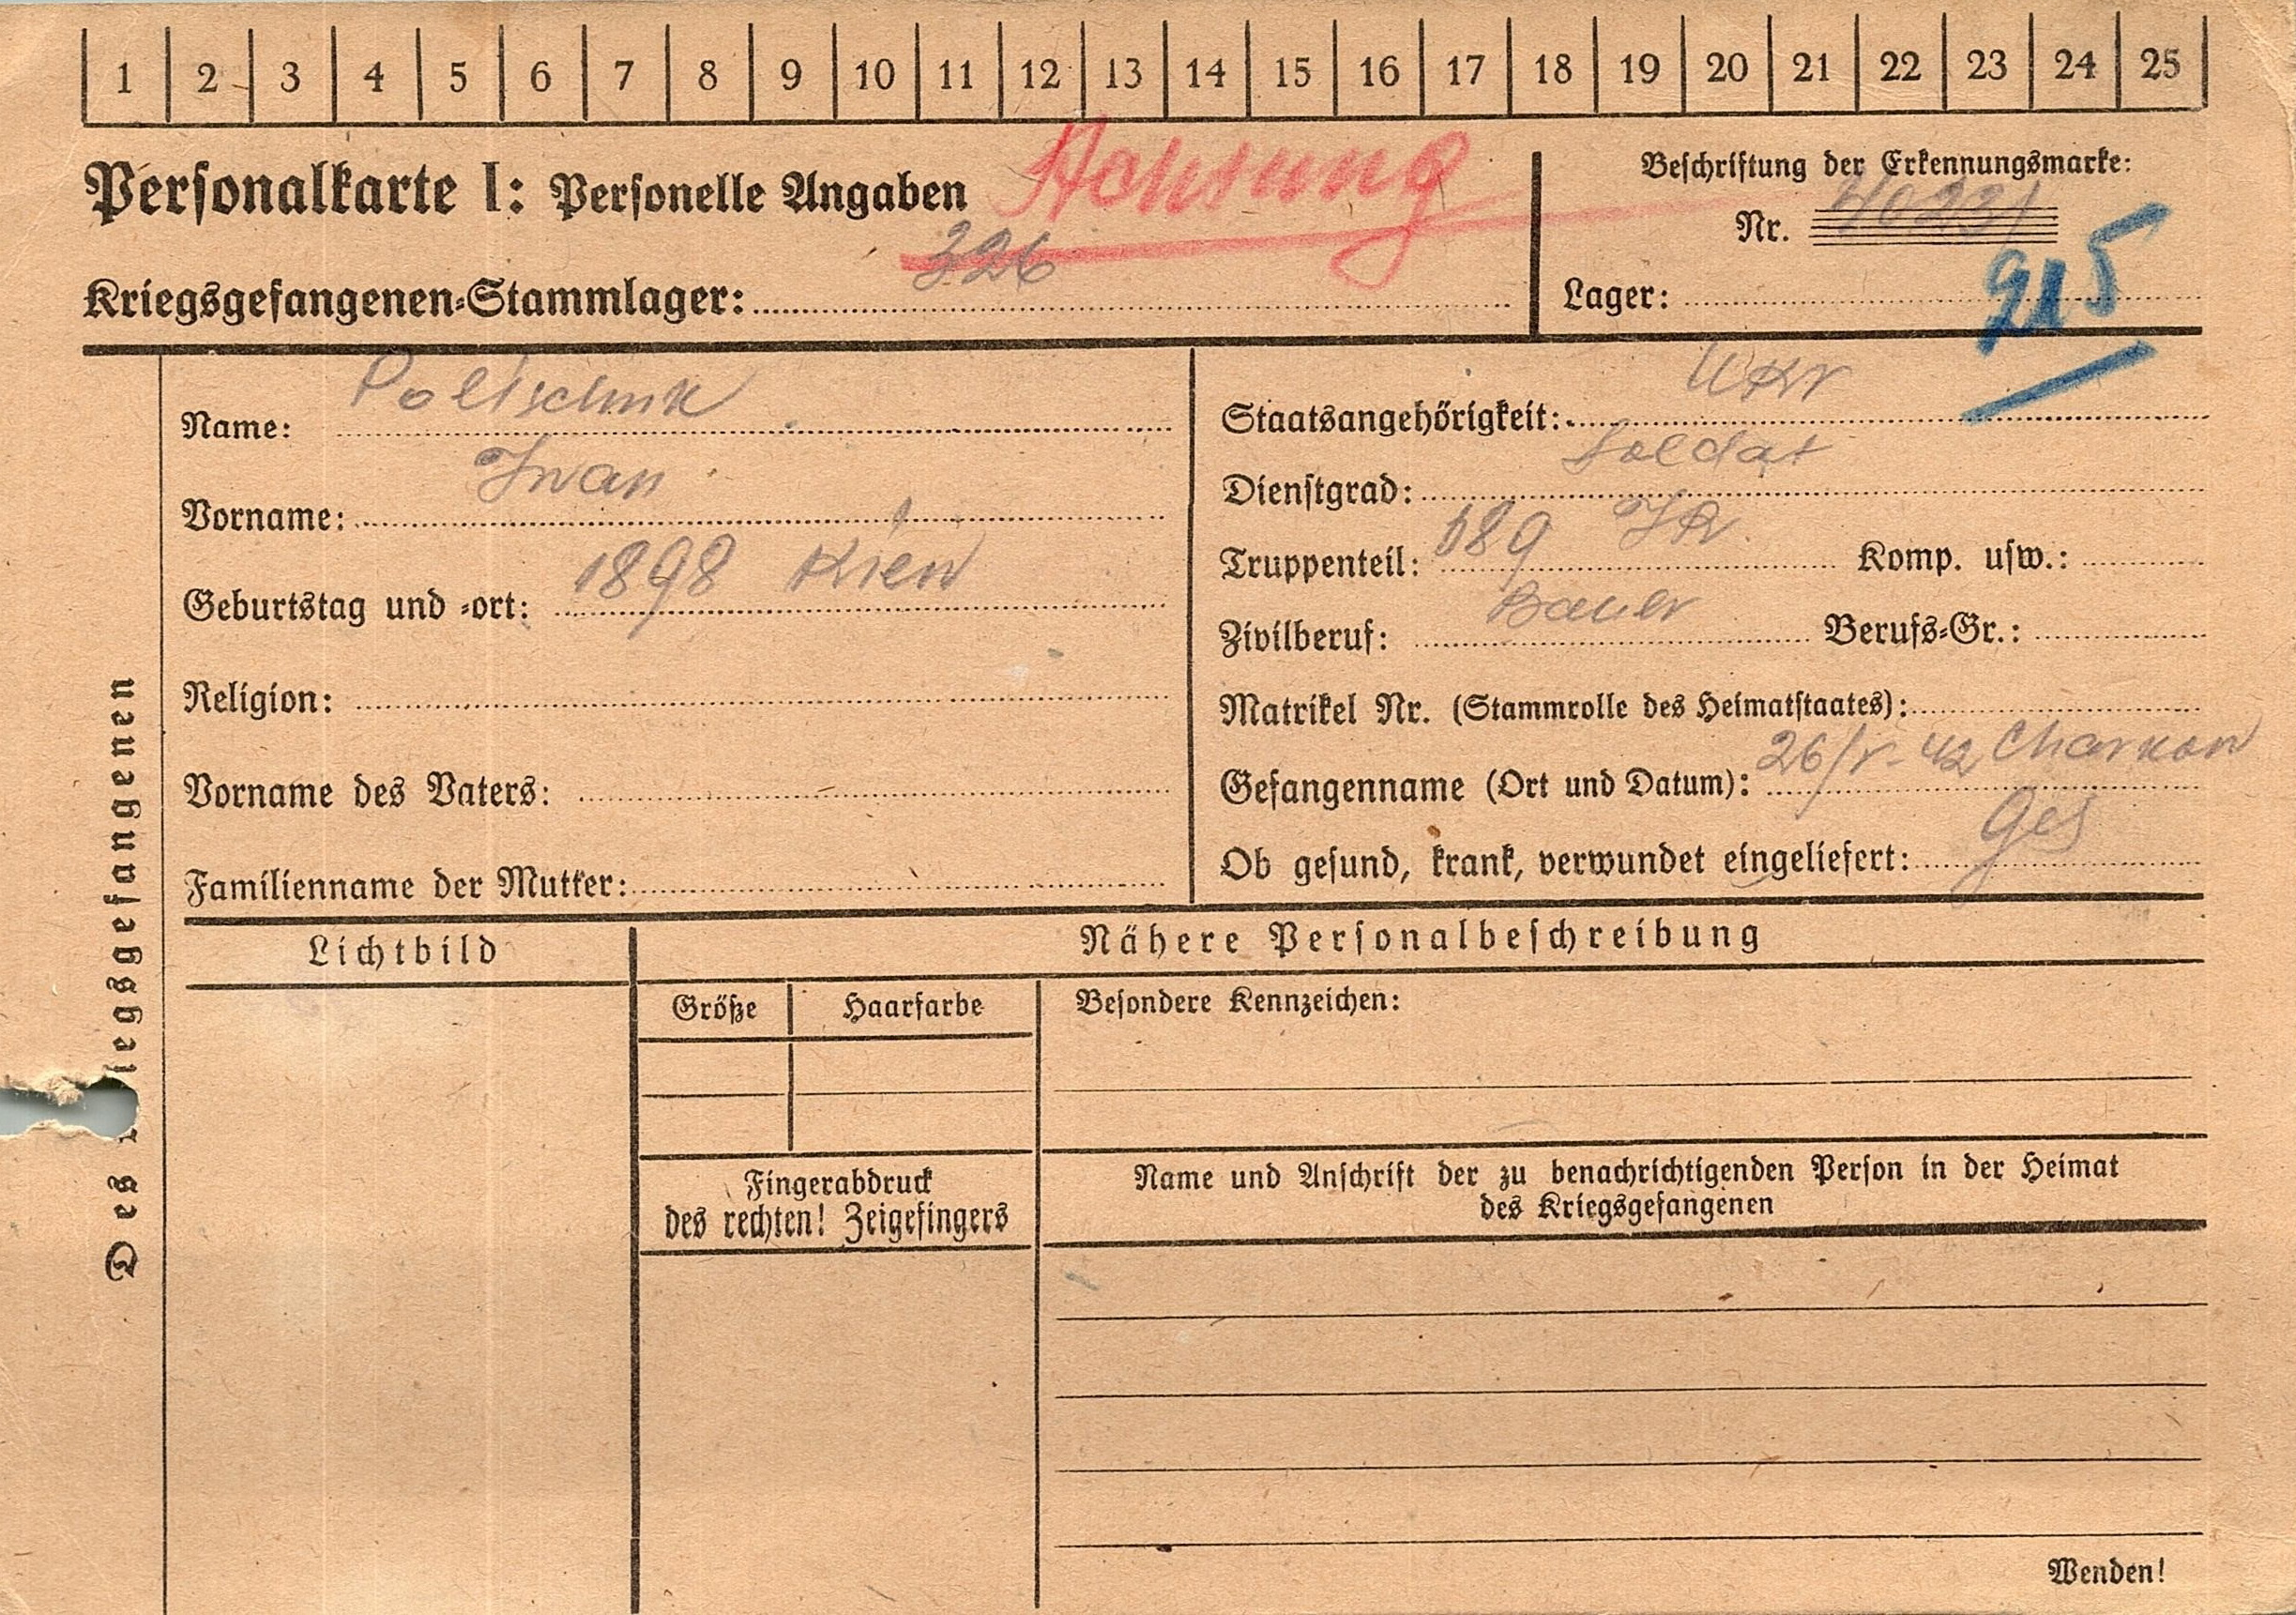 1 2 3 4 5 6 7 8 9 10 11 12 13 14 15 16 17 18 19 20 21 22 23 24 25
Personalkarte I: Personelle Angaben
Achtung
Beschriftung der Erkennungsmarke:
Nr. 40231
Kriegsgefangenen-Stammlager: 326
Lager:
915
Name: Poltschuk
Vorname: Iwan
Geburtstag und -ort: 1898 Kiew
Religion:
Vorname des Vaters:
Familienname der Mutter:
Staatsangehörigkeit: Ukr
Dienstgrad: Soldat
Truppenteil: 589 IR. Komp. usw.:
Zivilberuf: Bauer Berufs-Gr.:
Matrikel Nr. (Stammrolle des Heimatstaates):
Gefangenname (Ort und Datum): 26/V-42 Charkow
Ob gesund, krank, verwundet eingeliefert: Ges
Des Kriegsgefangenen
Lichtbild
Nähere Personalbeschreibung
Größe Haarfarbe Besondere Kennzeichen:
Fingerabdruck
des rechten! Zeigefingers
Name und Anschrift der zu benachrichtigenden Person in der Heimat
des Kriegsgefangenen
Wenden!